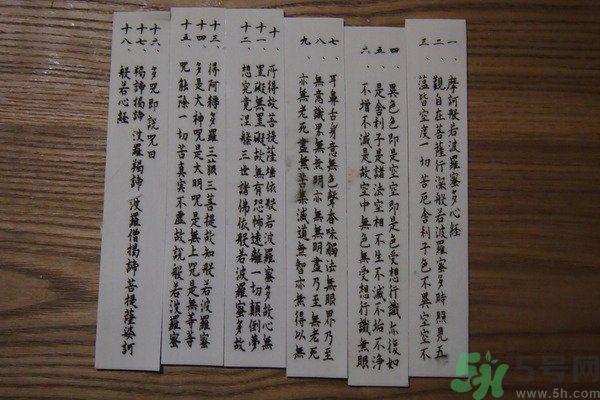 一、摩訶般若波羅蜜多心経
二、觀自在菩薩行深般若波羅蜜多時照見五
三、蕴皆空度一切苦厄舍利子色不異空空不
四、異色色即是空空即是色受想行識亦復如
五、是舍利子是諸法空相不生不滅不垢不浄
六、不增不減是故空中無色無受想行識無眼
七、耳鼻舌身意無色聲香味觸法無眼界乃至
八、無意識界無無明亦無無明盡乃至無老死
九、亦無老死盡無苦集滅道無智亦無得以無
十、所得故菩提薩埵依般若波羅蜜多故心無
十一、罣礙無罣礙故無有恐怖遠離一切顛倒夢
十二、想究竟涅槃三世諸佛依般若波羅蜜多故
十三、得阿耨多羅三藐三菩提故知般若波羅蜜
十四、多是大神咒是大明咒是無上咒是無等等
十五、咒能除一切苦真実不虛故說般若波羅蜜
十六、多咒即說咒曰
十七、羯諦揭諦 波羅羯諦 波羅僧揭諦 菩提薩婆訶
十八、般若心経
5号网
www.5h.com